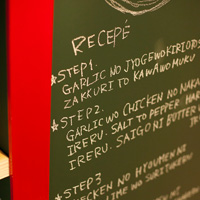 RECEPÉ
★STEP1.
GARLIC NO JYOGEWO KIRIOTOS
ZAKKURI TO KAWAWOMUKU
★STEP2.
GARLIC WO CHICKEN NO NAKA
IRERU. SALT TO PEPPER. HAR
IRERU. SAIGO NI BUTTER
★STEP3
CKEN NO HYOUMEN NI